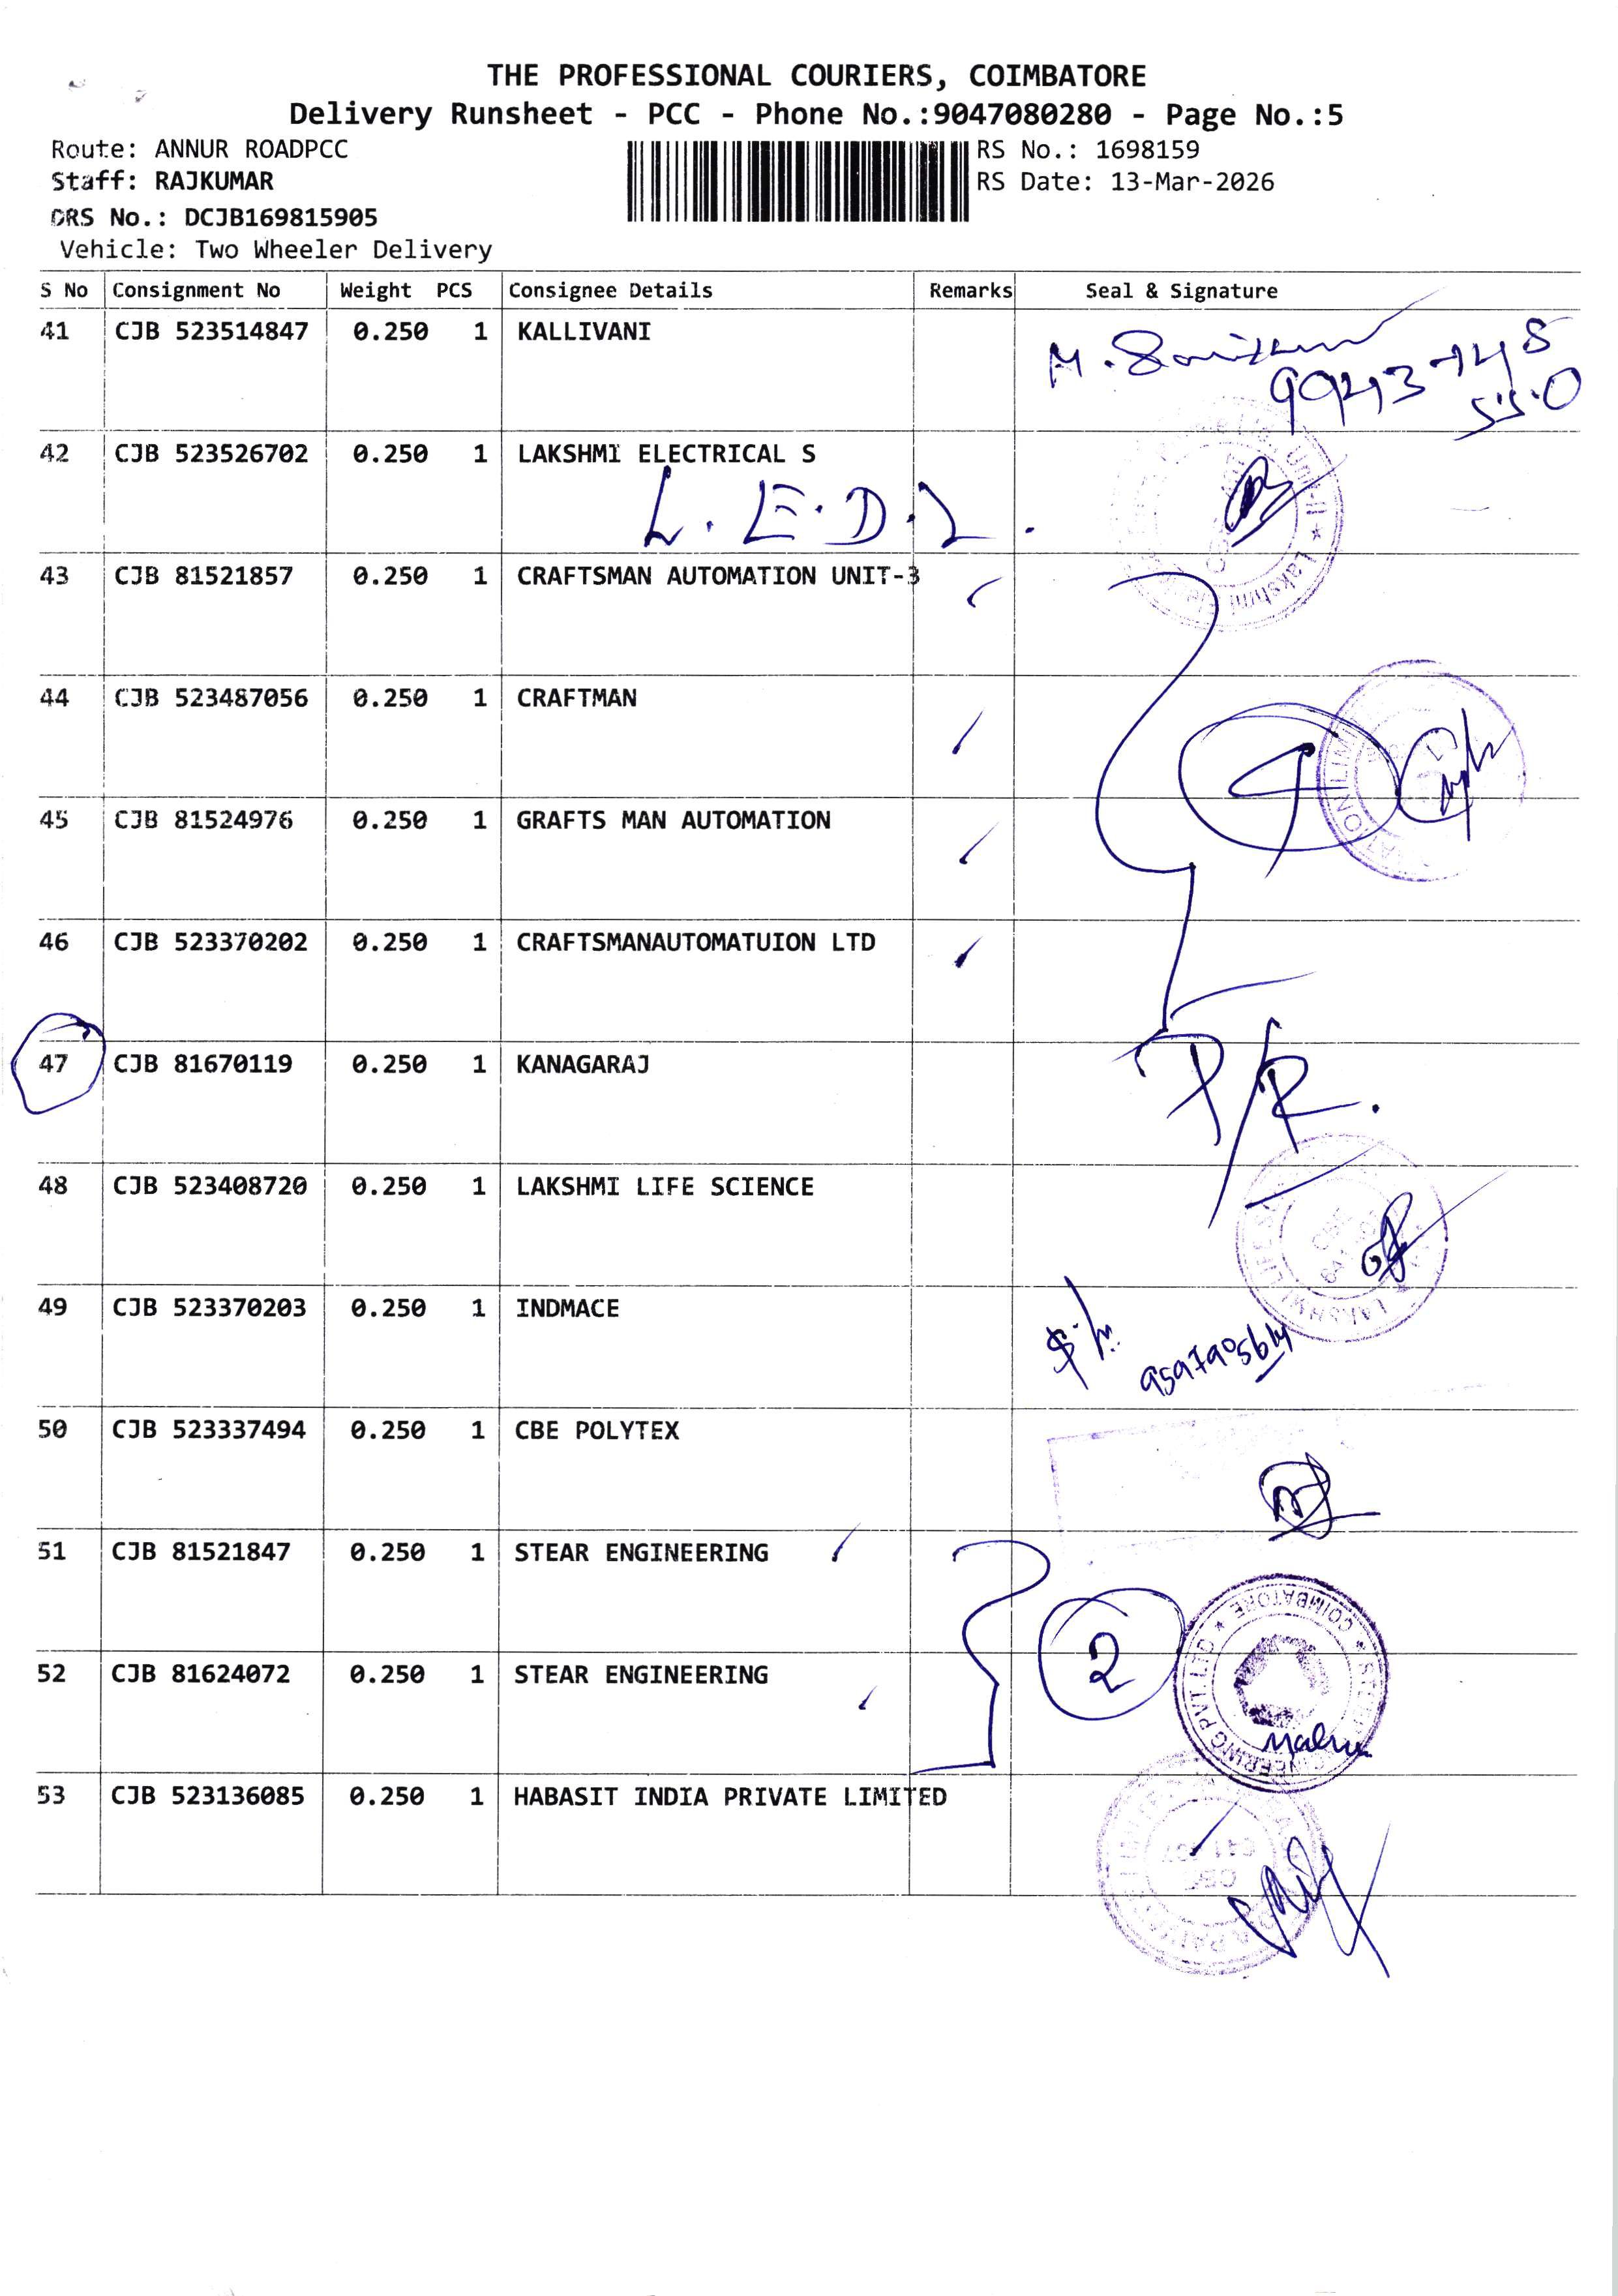 THE PROFESSIONAL COURIERS, COIMBATORE
Delivery Runsheet - PCC - Phone No.:9047080280 - Page No.:5
Route: ANNUR ROADPCC
RS No.: 1698159
Staff: RAJKUMAR
RS Date: 13-Mar-2026
DRS No.: DCJB169815905
Vehicle: Two Wheeler Delivery
S No Consignment No Weight PCS Consignee Details Remarks Seal & Signature
41 CJB 523514847 0.250 1 KALLIVANI
42 CJB 523526702 0.250 1 LAKSHMI ELECTRICAL S
L.E.D.L.
Lakshmi
43 CJB 81521857 0.250 1 CRAFTSMAN AUTOMATION UNIT-3
44 CJB 523487056 0.250 1 CRAFTMAN
4
45 CJB 81524976 0.250 1 GRAFTS MAN AUTOMATION
46 CJB 523370202 0.250 1 CRAFTSMANAUTOMATUION LTD
47 CJB 81670119 0.250 1 KANAGARAJ
P/R.
48 CJB 523408720 0.250 1 LAKSHMI LIFE SCIENCE
LAKSHMI LIFE
49 CJB 523370203 0.250 1 INDMACE
50 CJB 523337494 0.250 1 CBE POLYTEX
51 CJB 81521847 0.250 1 STEAR ENGINEERING
2
COIMBATORE
PVT. LTD
52 CJB 81624072 0.250 1 STEAR ENGINEERING
53 CJB 523136085 0.250 1 HABASIT INDIA PRIVATE LIMITED